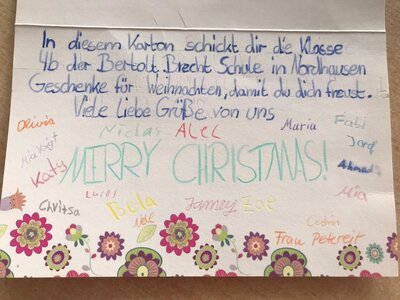 In diesem Karton schickt dir die Klasse
4b der Bertolt Brecht Schule in Nordhausen
Geschenke für Weihnachten, damit du dich freust.
Viele Liebe Grüße von uns
Olivia Niclas ALEC Maria Fabi
Mia Voigt Jord
Katy MERRY CHRISTMAS! Ahmad
Lucas Mia
Chritsa Bela Jamey Zoe
Nele Cedrin
Frau Petereit